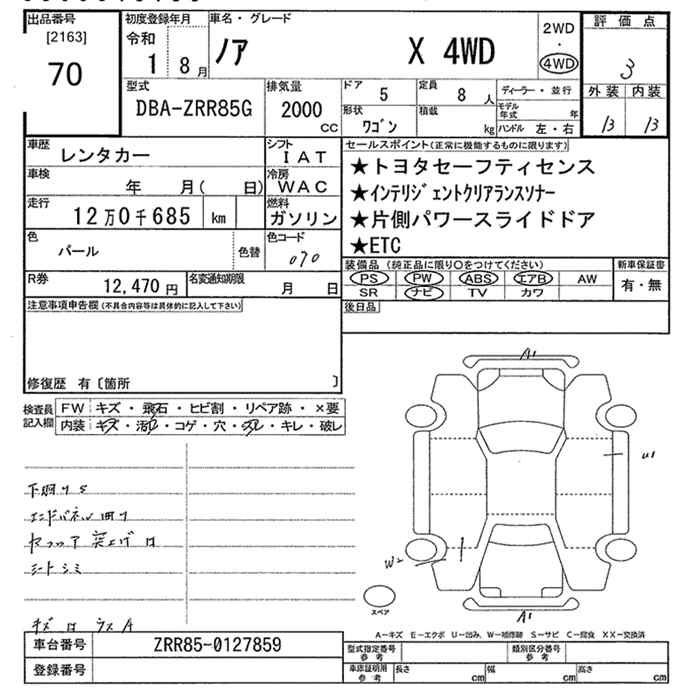 出品番号
[2163]
70
初度登録年月
令和
1 8月
車名・グレード
ノア X 4WD
2WD
・
4WD
評価点
3
外装 内装
B B
型式
DBA-ZRR85G
排気量
2000
cc
ドア 5
定員 8 人
形状 ワゴン
積載 kg
ディーラー・並行
モデル年式 年
ハンドル 左・右
車歴
レンタカー
シフト
IAT
車検
年 月( 日)
冷房
WAC
走行
12万0千685 km
燃料
ガソリン
色
パール
色替
色コード
070
R券
12,470円
名変通知期限
月 日
セールスポイント(正常に機能するものに限ります)
★トヨタセーフティセンス
★インテリジェントクリアランスソナー
★片側パワースライドドア
★ETC
装備品 (純正品に限り○をつけてください)
PS PW ABS エアB AW
SR ナビ TV カワ
新車保証書
有・無
後日品
注意事項申告欄(不具合内容等は具体的に記入して下さい)
修復歴 有〔箇所 〕
検査員記入欄
FW キズ・飛石・ヒビ割・リペア跡・×要
内装 キズ・汚れ・コゲ・穴・スレ・キレ・破レ
下回りS
エンドパネル凹り
シートシミ
キズ
A
A1
U1
W2
A1
スペア
A-キズ E-エクボ U-凹み、W-補修跡 S-サビ C-腐食 XX-交換済
車台番号
ZRR85-0127859
登録番号
型式指定番号
参考
類別区分番号
参考
車庫証明用
参考
長さ cm
幅 cm
高さ cm